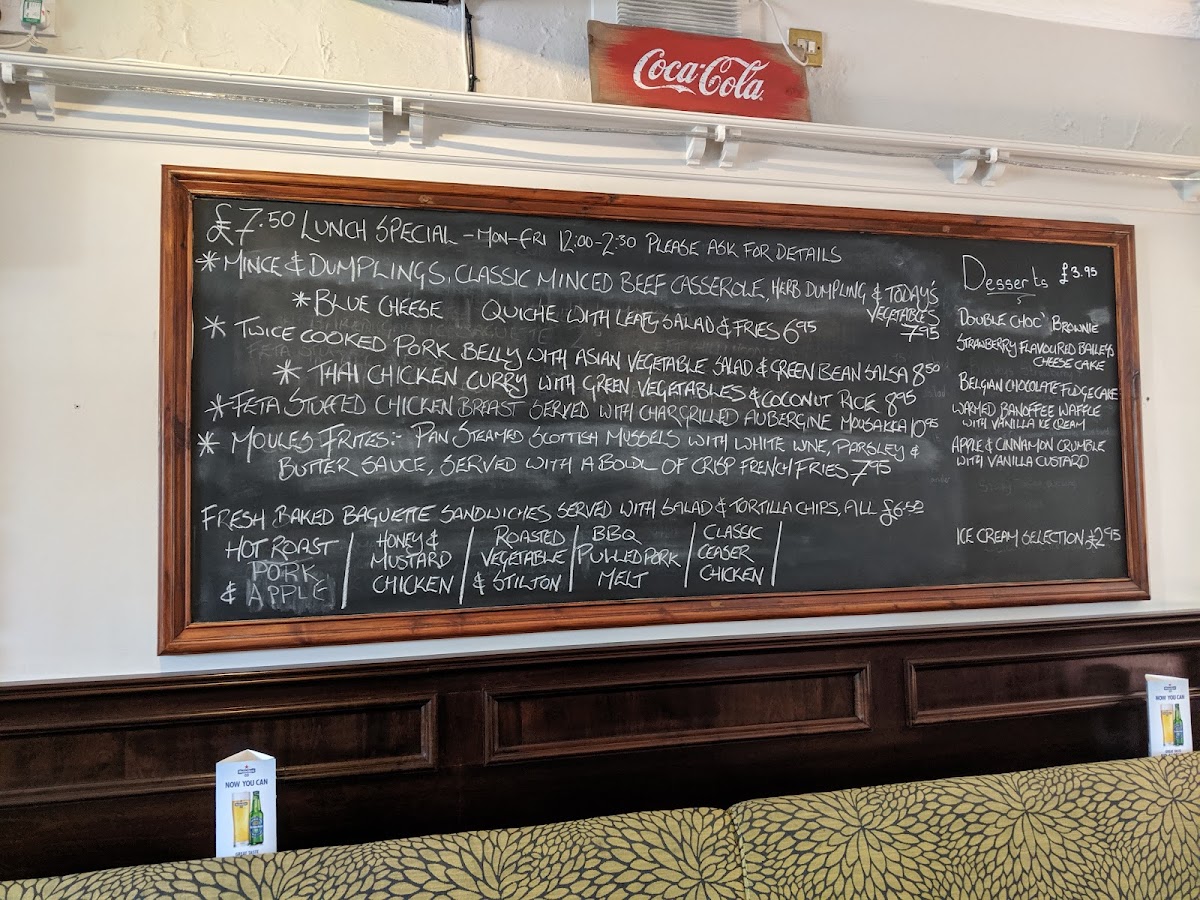 Coca-Cola
£7.50 LUNCH SPECIAL - MON-FRI 12:00-2:30 PLEASE ASK FOR DETAILS
* MINCE & DUMPLINGS, CLASSIC MINCED BEEF CASSEROLE, HERB DUMPLING & TODAY'S
VEGETABLES
7.95
* BLUE CHEESE QUICHE WITH LEAFY SALAD & FRIES 6.95
* TWICE COOKED PORK BELLY WITH ASIAN VEGETABLE SALAD & GREEN BEAN SALSA 8.50
* THAI CHICKEN CURRY WITH GREEN VEGETABLES & COCONUT RICE 8.95
* FETA STUFFED CHICKEN BREAST SERVED WITH CHARGRILLED AUBERGINE MOUSAKKA 10.95
* MOULES FRITES:- PAN STEAMED SCOTTISH MUSSELS WITH WHITE WINE, PARSLEY &
BUTTER SAUCE, SERVED WITH A BOWL OF CRISP FRENCH FRIES 7.95
FRESH BAKED BAGUETTE SANDWICHES SERVED WITH SALAD & TORTILLA CHIPS, ALL £6.50
HOT ROAST
PORK
& APPLE
HONEY &
MUSTARD
CHICKEN
ROASTED
VEGETABLE
& STILTON
BBQ
PULLED PORK
MELT
CLASSIC
CEASER
CHICKEN
Desserts £3.95
DOUBLE CHOC' BROWNIE
STRAWBERRY FLAVOURED BAILEYS
CHEESE CAKE
BELGIAN CHOCOLATE FUDGE CAKE
WARMED BANOFFEE WAFFLE
WITH VANILLA ICE CREAM
APPLE & CINNAMON CRUMBLE
WITH VANILLA CUSTARD
ICE CREAM SELECTION £2.95
NOW YOU CAN
NOW YOU CAN